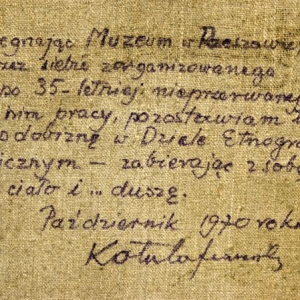 żegnając Muzeum w Rzeszowie,
przez siebie zorganizowanego
po 35-letniej nieprzerwanej
w nim pracy, pozostawiam
podobiznę w Dziele Etnogra
icznym — zabierając z sobą
ciało i ... duszę.
Październik 1970 roku
Kotula